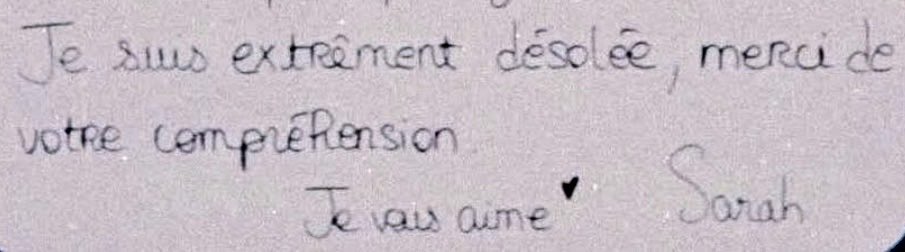 Je suis extrêment désolée, merci de
votre compréhension.
Je vous aime ♥ Sarah